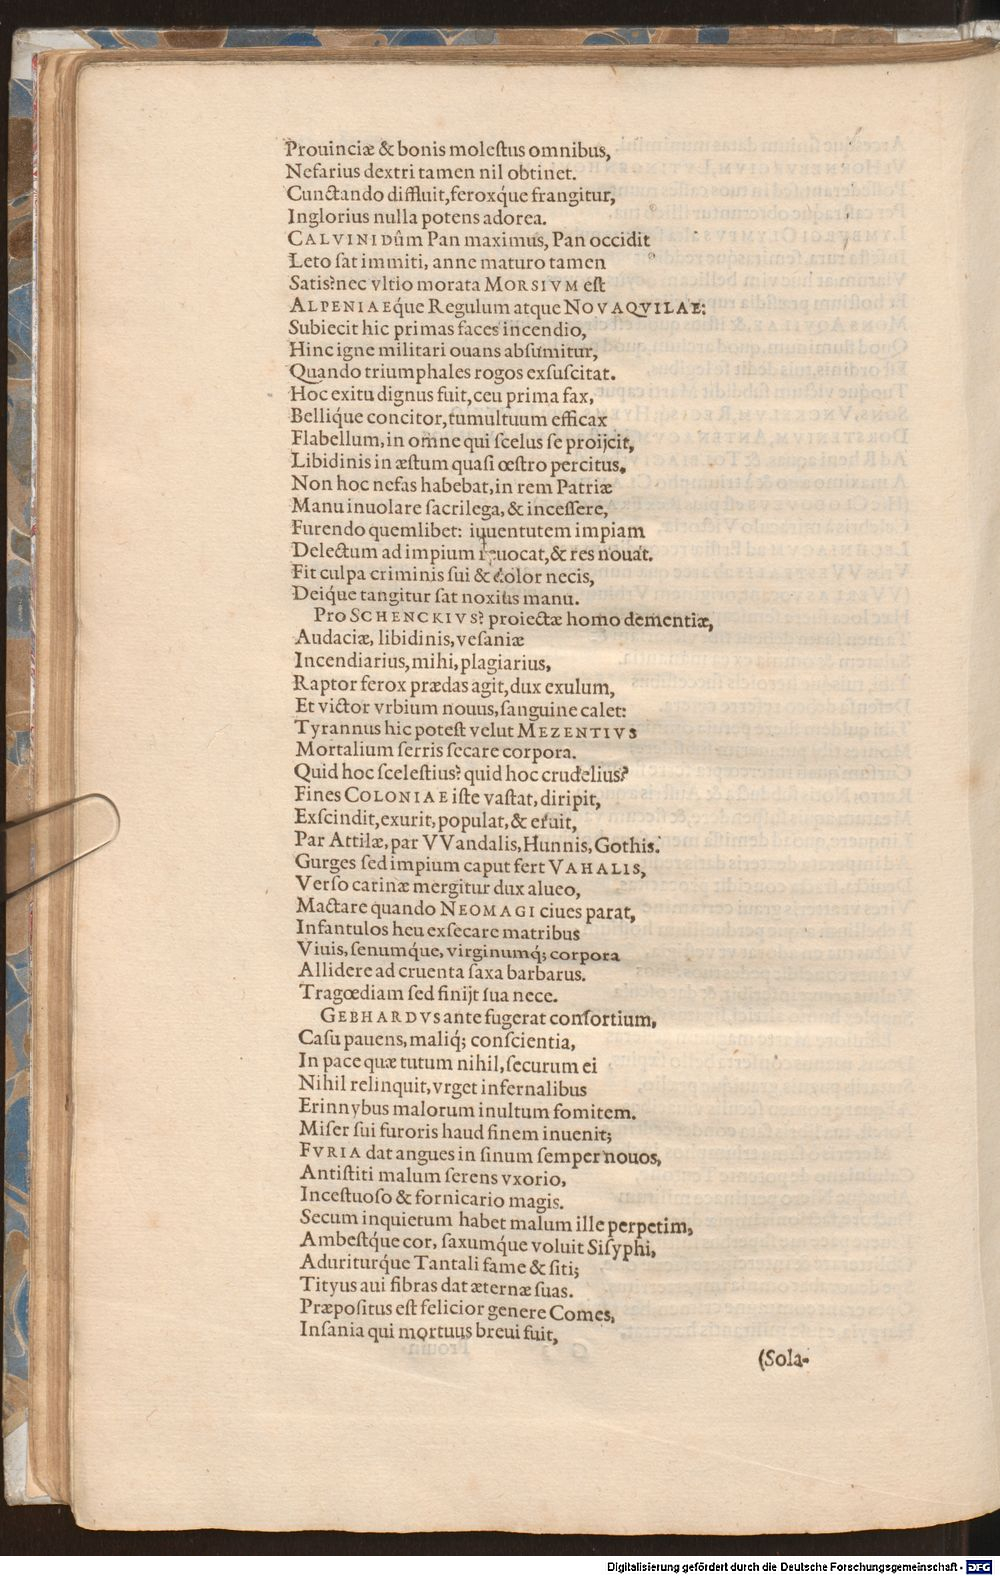 Prouinciæ & bonis molestus omnibus,
Nefarius dextri tamen nil obtinet.
Cunctando diffluit, feroxq́ue frangitur,
Inglorius nulla potens adorea.
CALVINIDûm Pan maximus, Pan occidit
Leto sat immiti, anne maturo tamen
Satis? nec vltio morata MORSIVM est
ALPENIAEq́ue Regulum atque NOVAQVILAE:
Subiecit hic primas faces incendio,
Hinc igne militari ouans absumitur,
Quando triumphales rogos exsuscitat.
Hoc exitu dignus fuit, ceu prima fax,
Belliq́ue concitor, tumultuum efficax
Flabellum, in omne qui scelus se proijcit,
Libidinis in æstum quasi œstro percitus.
Non hoc nefas habebat, in rem Patriæ
Manu inuolare sacrilega, & incessere,
Furendo quemlibet: iuuentutem impiam
Delectum ad impium euocat, & res nouat.
Fit culpa criminis sui & dolor necis,
Deique tangitur sat noxius manu.
Pro SCHENCKIVS? proiectæ homo dementiæ,
Audaciæ, libidinis, vesaniæ
Incendiarius, mihi, plagiarius,
Raptor ferox prædas agit, dux exulum,
Et victor vrbium nouus, sanguine calet:
Tyrannus hic potest velut MEZENTIVS
Mortalium serris secare corpora.
Quid hoc scelestius? quid hoc crudelius?
Fines COLONIAE iste vastat, diripit,
Exscindit, exurit, populat, & eruit,
Par Attilæ, par VVandalis, Hunnis, Gothis.
Gurges sed impium caput fert VAHALIS,
Verso carinæ mergitur dux alueo,
Mactare quando NEOMAGI ciues parat,
Infantulos heu exsecare matribus
Viuis, senumq́ue, virginumq́; corpora
Allidere ad cruenta saxa barbarus.
Tragœdiam sed finijt sua nece.
GEBHARDVS ante fugerat consortium,
Casu pauens, maliq́; conscientia,
In pace quæ tutum nihil, securum ei
Nihil relinquit, vrget infernalibus
Erinnybus malorum inultum fomitem.
Miser sui furoris haud finem inuenit;
FVRIA dat angues in sinum semper nouos,
Antistiti malum serens vxorio,
Incestuoso & fornicario magis.
Secum inquietum habet malum ille perpetim,
Ambestq́ue cor, saxumq́ue voluit Sisyphi,
Aduriturq́ue Tantali fame & siti;
Tityus aui fibras dat æternæ suas.
Præpositus est felicior genere Comes,
Insania qui mortuus breui fuit,
(Sola-
Digitalisierung gefördert durch die Deutsche Forschungsgemeinschaft - DFG